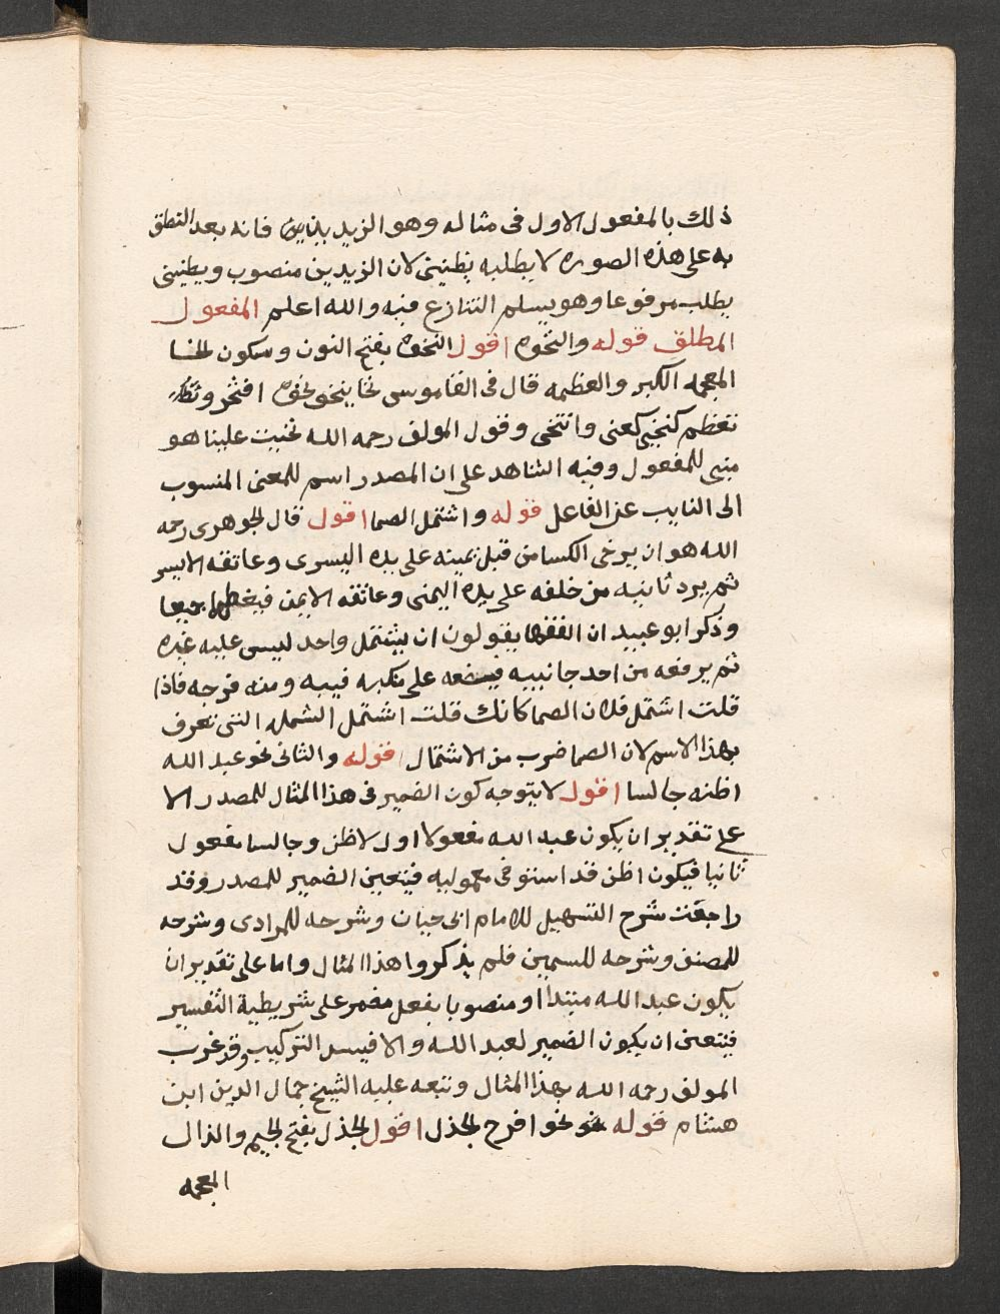 ذلك بالمفعول الاول فى مثاله وهو الزيدين فانه بعد النطق
به على هذه الصوره لا يطلبه يظنينى لان الزيدين منصوب ويظنينى
يطلب مرفوعا وهو يسلم التنازع فيه والله اعلم المفعول
المطلق قوله والنخوه اقول النخوه بفتح النون وسكون الخا
المعجمه الكبر والعظمه قال فى القاموس نخا ينخو نخوه افتخر و
تعظم كنخى كعنى وانتخى وقول المولف رحمه الله نخيت علينا هو
مبنى للمفعول وفيه الشاهد على ان المصدر اسم للمعنى المنسوب
الى النايب عن الفاعل قوله واشتمل الصما اقول قال الجوهرى رحمه
الله هو ان يرخى الكسا من قبل يمينه على يده اليسرى وعاتقه الايسر
ثم يرد ثانيه من خلفه على يده اليمنى وعاتقه الايمن فيغطهما جميعا
وذكر ابو عبيد ان الفقها يقولون ان يشتمل واحد ليس عليه غيره
ثم يرفعه من احد جانبيه فيضعه على منكبه فيبه ومنه فرجه فاذا
قلت اشتمل فلان الصما كانك قلت اشتمل الشمله التى تعرف
بهذا الاسم لان الصما ضرب من الاشتمال قوله والثانى نحو عبد الله
اظنه جالسا اقول لا يتوجه كون الضمير فى هذا المثال للمصدر الا
على تقدير ان يكون عبد الله مفعولا اول لاظن وجالسا مفعول
ثانيا فيكون اظن قد استوفى معموليه فيتعين الضمير للمصدر وقد
راجعت شرح التسهيل للامام ابى حيان وشرحه للمرادى وشرحه
للمصنف وشرحه للسمين فلم يذكروا هذا المثال واما على تقدير ان
يكون عبد الله مبتدا او منصوبا بفعل مضمر على شريطية التفسير
فيتعين ان يكون الضمير لعبد الله والا فيسد التركيب وقد غرب
المولف رحمه الله بهذا المثال وتبعه عليه الشيخ جمال الدين ابن
هشام قوله نحو افرح الجذل اقول الجذل بفتح الجيم والذال
المعجمه